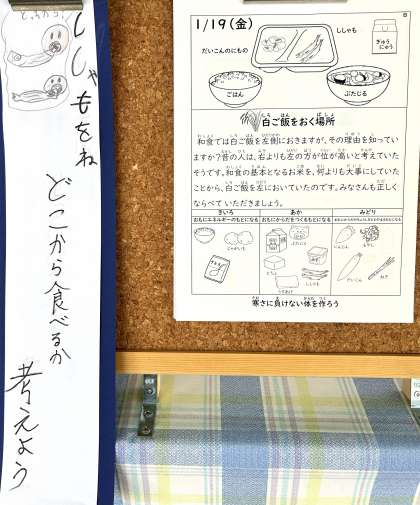 どっちから?
ししゃもをね
どこから食べるか
考えよう
1/19(金)
ししゃも
ぎゅうにゅう
だいこんのにもの
ごはん
ぶたじる
白ご飯をおく場所
和食では白ご飯を左側におきますが、その理由を知ってい
ますか?昔の人は、右よりも左の方が位が高いと考えていた
そうです。和食の基本となるお米を、何よりも大事にしていた
ことから、白ご飯を左においていたのです。みなさんも正しく
ならべて いただきましょう。
きいろ
あか
みどり
おもにエネルギーのもとになる
おもにからだをつくるもとになる
じゃがいも
にんじん
もやし
ねぎ
寒さに負けない体を作ろう